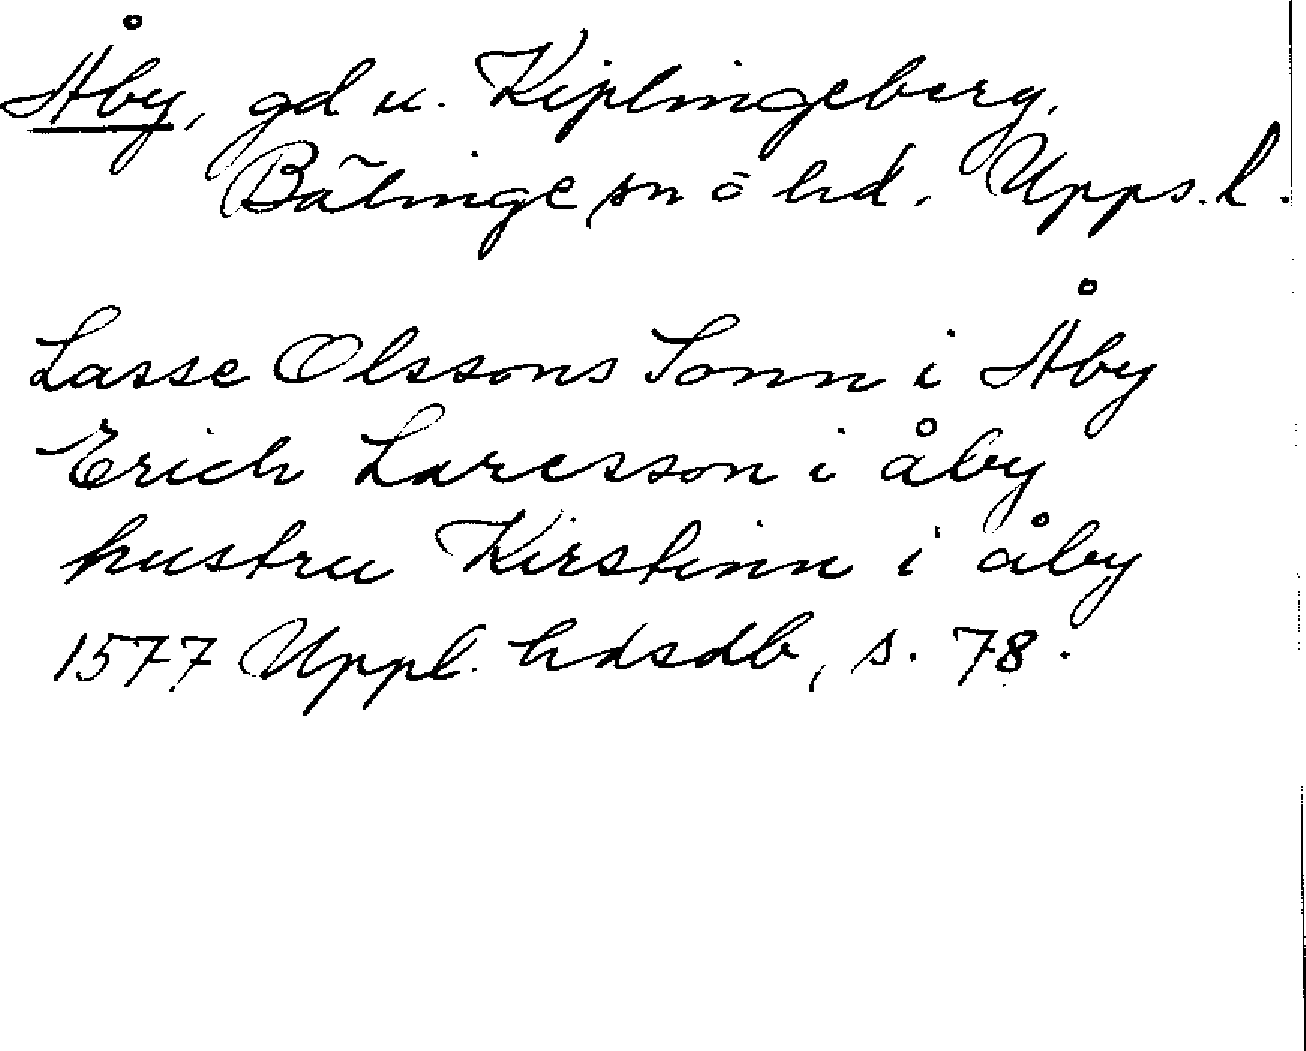 Åby, gd u. Kiplingeberg,
Bälinge sn o hd. Upps. l.
Lasse Olssons Sonn i Åby
Erich Larcsson i åby
hustru Kirstinn i åby
1577 Uppl. hdsdb, s. 78.